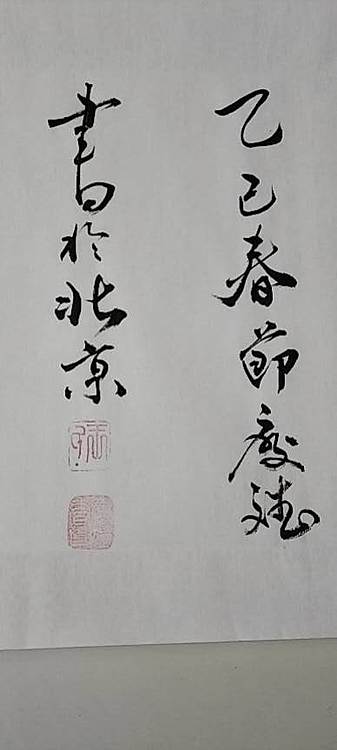 乙巳春節
書於北京